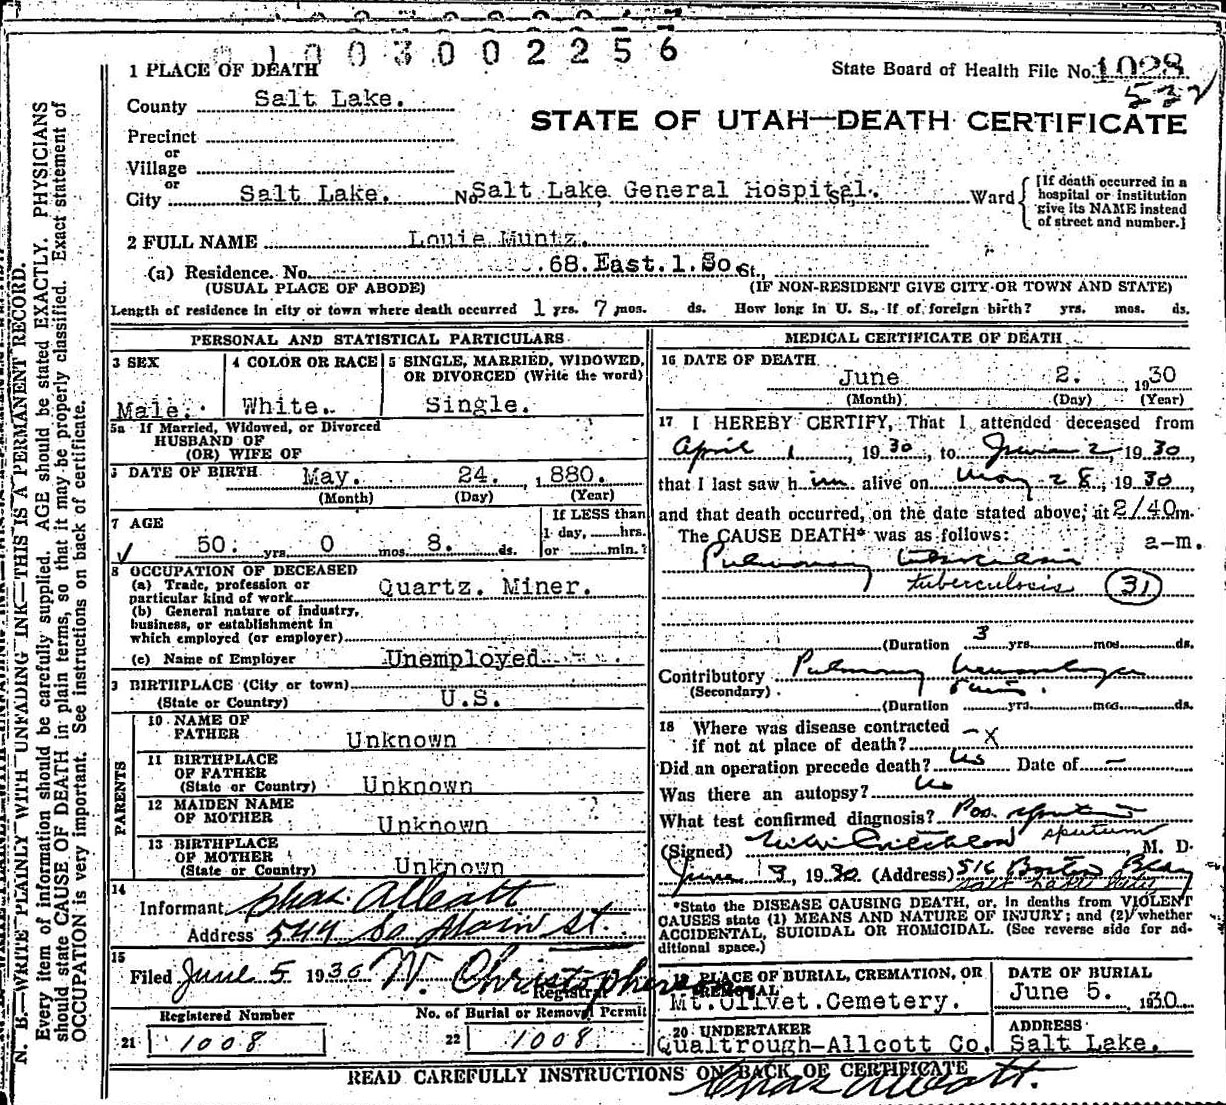 0 1 0 0 3 0 0 2 2 5 6
1 PLACE OF DEATH
State Board of Health File No. 1028
532
County Salt Lake.
STATE OF UTAH—DEATH CERTIFICATE
Precinct
or
Village
or
City Salt Lake. No Salt Lake General Hospital. St., Ward
[If death occurred in a hospital or institution give its NAME instead of street and number.]
2 FULL NAME Louie Muntz.
(a) Residence. No. 68. East. 1. So. St.,
(USUAL PLACE OF ABODE) (IF NON-RESIDENT GIVE CITY OR TOWN AND STATE)
Length of residence in city or town where death occurred 1 yrs. 7 mos. ds. How long in U. S., if of foreign birth? yrs. mos. ds.
PERSONAL AND STATISTICAL PARTICULARS
3 SEX
Male.
4 COLOR OR RACE
White.
5 SINGLE, MARRIED, WIDOWED, OR DIVORCED (Write the word)
Single.
5a If Married, Widowed, or Divorced
HUSBAND OF
(OR) WIFE OF
DATE OF BIRTH May. 24. 1880.
(Month) (Day) (Year)
7 AGE
50. yrs. 0 mos. 8. ds.
If LESS than
1 day, hrs.
or min.?
8 OCCUPATION OF DECEASED
(a) Trade, profession or
particular kind of work Quartz. Miner.
(b) General nature of industry,
business, or establishment in
which employed (or employer)
(c) Name of Employer Unemployed
BIRTHPLACE (City or town)
(State or Country) U.S.
PARENTS
10 NAME OF
FATHER Unknown
11 BIRTHPLACE
OF FATHER
(State or Country) Unknown
12 MAIDEN NAME
OF MOTHER Unknown
13 BIRTHPLACE
OF MOTHER
(State or Country) Unknown
14
Informant Chas. Allcott
Address 544 So Main St.
15
Filed June 5 1930 W. Christopherson
Registrar
Registered Number
21 1008
No. of Burial or Removal Permit
22 1008
MEDICAL CERTIFICATE OF DEATH
16 DATE OF DEATH
June 2. 1930
(Month) (Day) (Year)
17 I HEREBY CERTIFY, That I attended deceased from
April 1, 1930, to June 2, 1930,
that I last saw him alive on May 28, 1930,
and that death occurred, on the date stated above, at 2/40 m.
The CAUSE DEATH* was as follows: a-m.
Pulmonary tuberculosis
tuberculosis 31
(Duration 3 yrs. mos. ds.
Contributory Pulmonary hemorrhage
(Secondary)
(Duration yrs. mos. ds.
18 Where was disease contracted
if not at place of death? – x
Did an operation precede death? No Date of –
Was there an autopsy? No
What test confirmed diagnosis? Pos. sputum
sputum
(Signed) M. D.
June 3, 1930 (Address) 516 Boston Bldg
Salt Lake City
*State the DISEASE CAUSING DEATH, or, in deaths from VIOLENT
CAUSES state (1) MEANS AND NATURE OF INJURY; and (2) whether
ACCIDENTAL, SUICIDAL OR HOMICIDAL. (See reverse side for ad-
ditional space.)
19 PLACE OF BURIAL, CREMATION, OR
REMOVAL
Mt. Olivet. Cemetery.
DATE OF BURIAL
June 5. 1930
20 UNDERTAKER
Qualtrough-Allcott Co.
ADDRESS
Salt Lake.
READ CAREFULLY INSTRUCTIONS ON BACK OF CERTIFICATE
Chas Allcott.
N. B.—WRITE PLAINLY WITH UNFADING INK—THIS IS A PERMANENT RECORD.
Every item of information should be carefully supplied. AGE should be stated EXACTLY. PHYSICIANS
should state CAUSE OF DEATH in plain terms, so that it may be properly classified. Exact statement of
OCCUPATION is very important. See instructions on back of certificate.